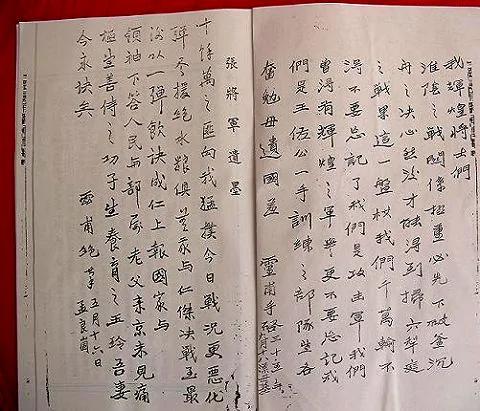 我輝煌將士們
淮陰之戰關係極重必先下破釜沉
舟之決心然後才能得到掃穴犁庭
之戰果這一盤杖我們千萬輸不
得不要忘記了我們是攻主軍我們
曾得有輝煌之軍譽更不要忘記我
們是王佐公一手訓練之部隊望各
奮勉毋遺國羞
靈甫手啓
張將軍遺墨
十餘萬之匪向我猛撲今日戰況更惡化
彈盡援絕水糧俱無我與仁傑決戰至最
後以一彈飲訣成仁上報國家與
領袖下答人民與部屬老父來京未見痛
極望善待之幼子望養育之玉玲吾妻
今永訣矣
靈甫絕筆 五月十六日
孟良崮